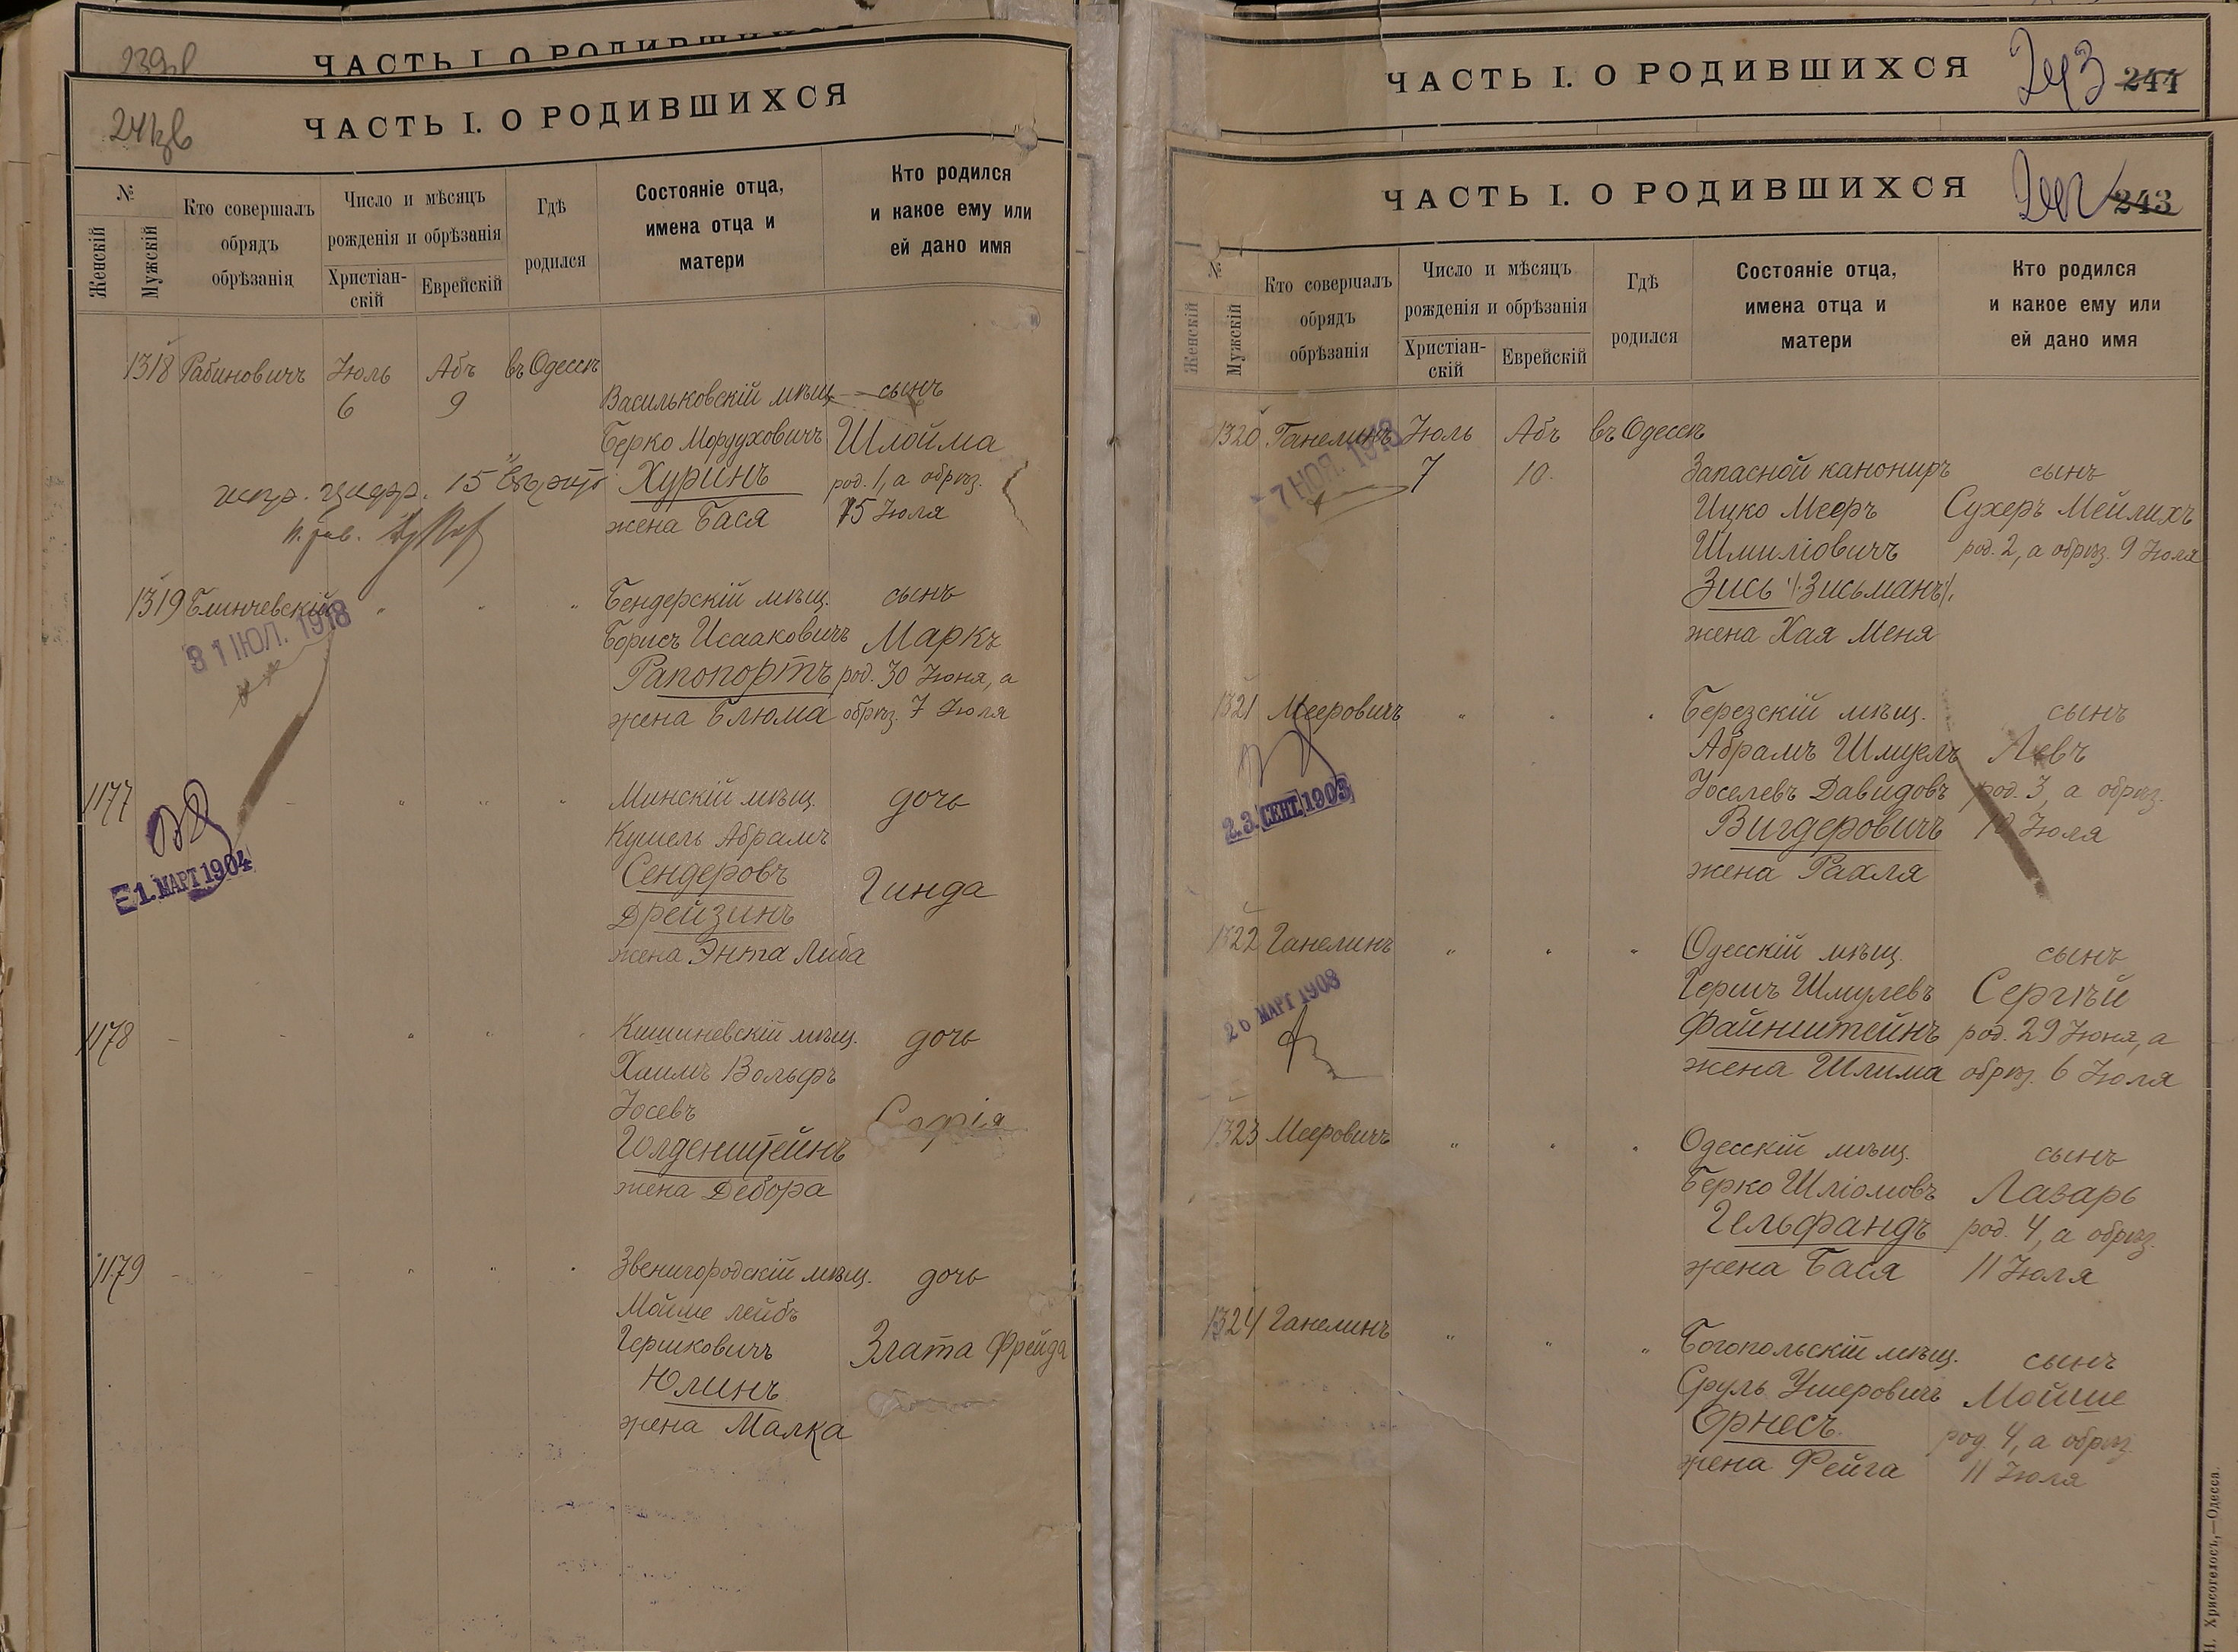 ЧАСТЬ I. О РОДИВШИХСЯ
ЧАСТЬ I. О РОДИВШИХСЯ
№
Женскій
Мужскій
Кто совершалъ
обрядъ
обрѣзанія
Число и мѣсяцъ
рожденія и обрѣзанія
Христіан-
скій
Еврейскій
Гдѣ
родился
Состояніе отца,
имена отца и
матери
Кто родился
и какое ему или
ей дано имя
1318 Рабиновичъ Іюль Абъ въ Одессѣ
6 9 Васильковскій мѣщ. сынъ
Берко Мордуховичъ Шлойма
Хуринъ род. 1, а обрѣз.
жена Бася 15 Іюля
испр. цифр. "15"
1319 Блинчевскій " " " Бендерскій мѣщ. сынъ
31 ІЮЛ. 1918
Борисъ Исааковичъ Маркъ
Рапопортъ род. 30 Іюня, а
жена Блюма обрѣз. 7 Іюля
1177 - " " " Минскій мѣщ. дочь
Кушель Абрамъ
Сендеровъ Гинда
Дрейзинъ
жена Энта Либа
1. МАРТ 1904
1178 - - " " " Кишиневскій мѣщ. дочь
Хаимъ Вольфъ
Іосевъ Софія
Голденштейнъ
жена Дебора
1179 - - " " " Звенигородскій мѣщ. дочь
Мойше Лейбъ
Гершковичъ Злата Фрейда
Юлинъ
жена Малка
ЧАСТЬ I. О РОДИВШИХСЯ 243 244
ЧАСТЬ I. О РОДИВШИХСЯ 242 243
№
Женскій
Мужскій
Кто совершалъ
обрядъ
обрѣзанія
Число и мѣсяцъ
рожденія и обрѣзанія
Христіан-
скій
Еврейскій
Гдѣ
родился
Состояніе отца,
имена отца и
матери
Кто родился
и какое ему или
ей дано имя
1320 Ганелинъ Іюль Абъ въ Одессѣ
7 НОЯ. 1918
7 10. Запасной канониръ сынъ
Ицко Мееръ Сухеръ Мейлихъ
Шмиліовичъ род. 2, а обрѣз. 9 Іюля
Зись (Зисьманъ),
жена Хая Меня
1321 Мееровичъ " " " Березскій мѣщ. сынъ
Абрамъ Шмуель Левъ
Іоселевъ Давидовъ род. 3, а обрѣз.
Вигдеровичъ 10 Іюля
жена Рахля
23. СЕНТ. 1903
1322 Ганелинъ " " " Одесскій мѣщ. сынъ
Гершъ Шмулевъ Сергѣй
Файнштейнъ род. 29 Іюня, а
жена Шлима обрѣз. 6 Іюля
26 МАРТ 1908
1323 Мееровичъ " " " Одесскій мѣщ. сынъ
Берко Шліомовъ Лазарь
Гельфандъ род. 4, а обрѣз.
жена Бася 11 Іюля
1324 Ганелинъ " " " Богопольскій мѣщ. сынъ
Сруль Ушеровичъ Мойше
Орнесъ род. 4, а обрѣз.
жена Фейга 11 Іюля
Хрисогелосъ,—Одесса.